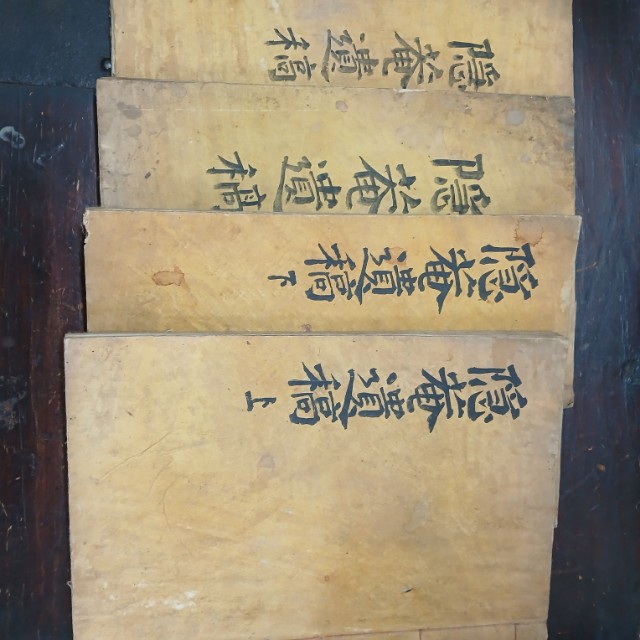 隱菴遺稿
隱菴遺稿
隱菴遺稿 下
隱菴遺稿 上